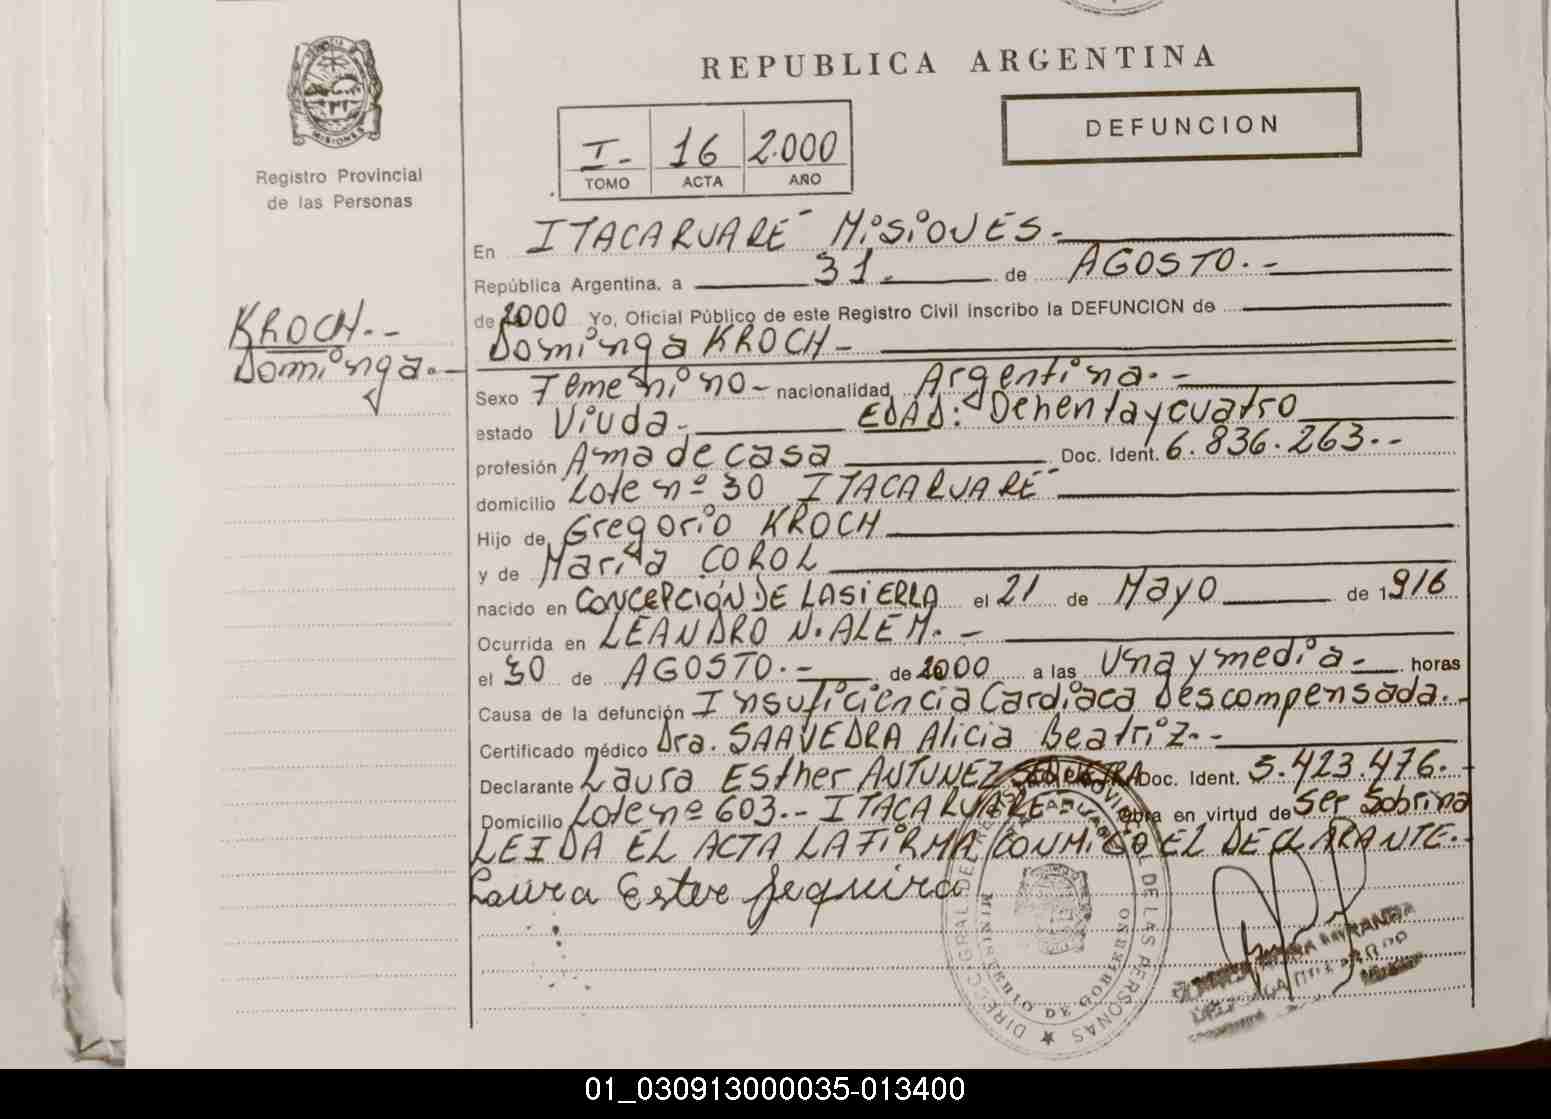 REPUBLICA ARGENTINA
MISIONES
Registro Provincial
de las Personas
I- 16 2.000
TOMO ACTA AÑO
DEFUNCION
KROCH.-
Dominga.-
En ITACARUARÉ MISIONES.-
República Argentina, a 31.- de AGOSTO.-
de 2000 Yo, Oficial Público de este Registro Civil inscribo la DEFUNCION de
Dominga KROCH-
Sexo Femenino- nacionalidad Argentina.-
estado Viuda.- EDAD: Ochentaycuatro
profesión Ama de casa Doc. Ident. 6.836.263.--
domicilio Lote nº 30 ITACARUARÉ
Hijo de Gregorio KROCH
y de María COROL
nacido en CONCEPCIÓN DE LA SIERRA el 21 de Mayo de 1916
Ocurrida en LEANDRO N. ALEM.-
el 30 de AGOSTO.- de 2000 a las Una y media.- horas
Causa de la defunción Insuficiencia Cardíaca Descompensada.-
Certificado médico Dra. SAAVEDRA Alicia Beatriz.-
Declarante Laura Esther ANTUNEZ Doc. Ident. 5.423.476.-
Domicilio Lote nº 603.- ITACARUARÉ Obra en virtud de Ser Sobrina
LEIDA EL ACTA LA FIRMA CONMIGO EL DECLARANTE.-
Laura Ester Sequeira
DE LAS PERSONAS
MINISTERIO DE GOBIERNO
MIRANDA
01_030913000035-013400